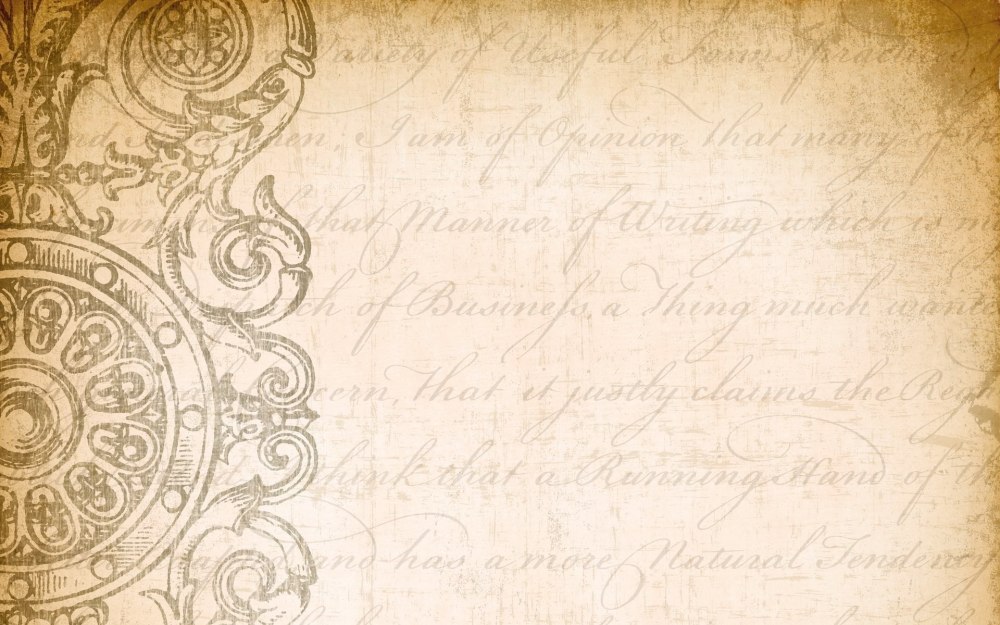 Variety of Useful Forms practised
I am of Opinion that many of
that Manner of Writing which is
of Busineſs a Thing much
that it justly claims the
think that a Running Hand of
and has a more Natural Tendency